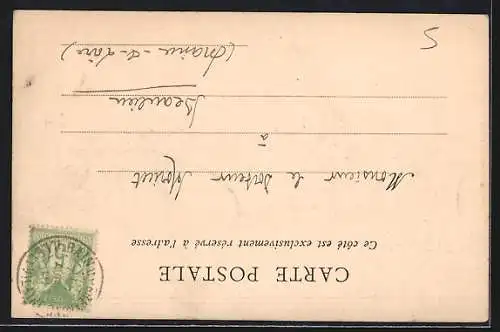 CARTE POSTALE
Ce côté est exclusivement réservé à l'adresse
Monsieur le Docteur
à
Beaulieu
(Maine-&-Loire)
5